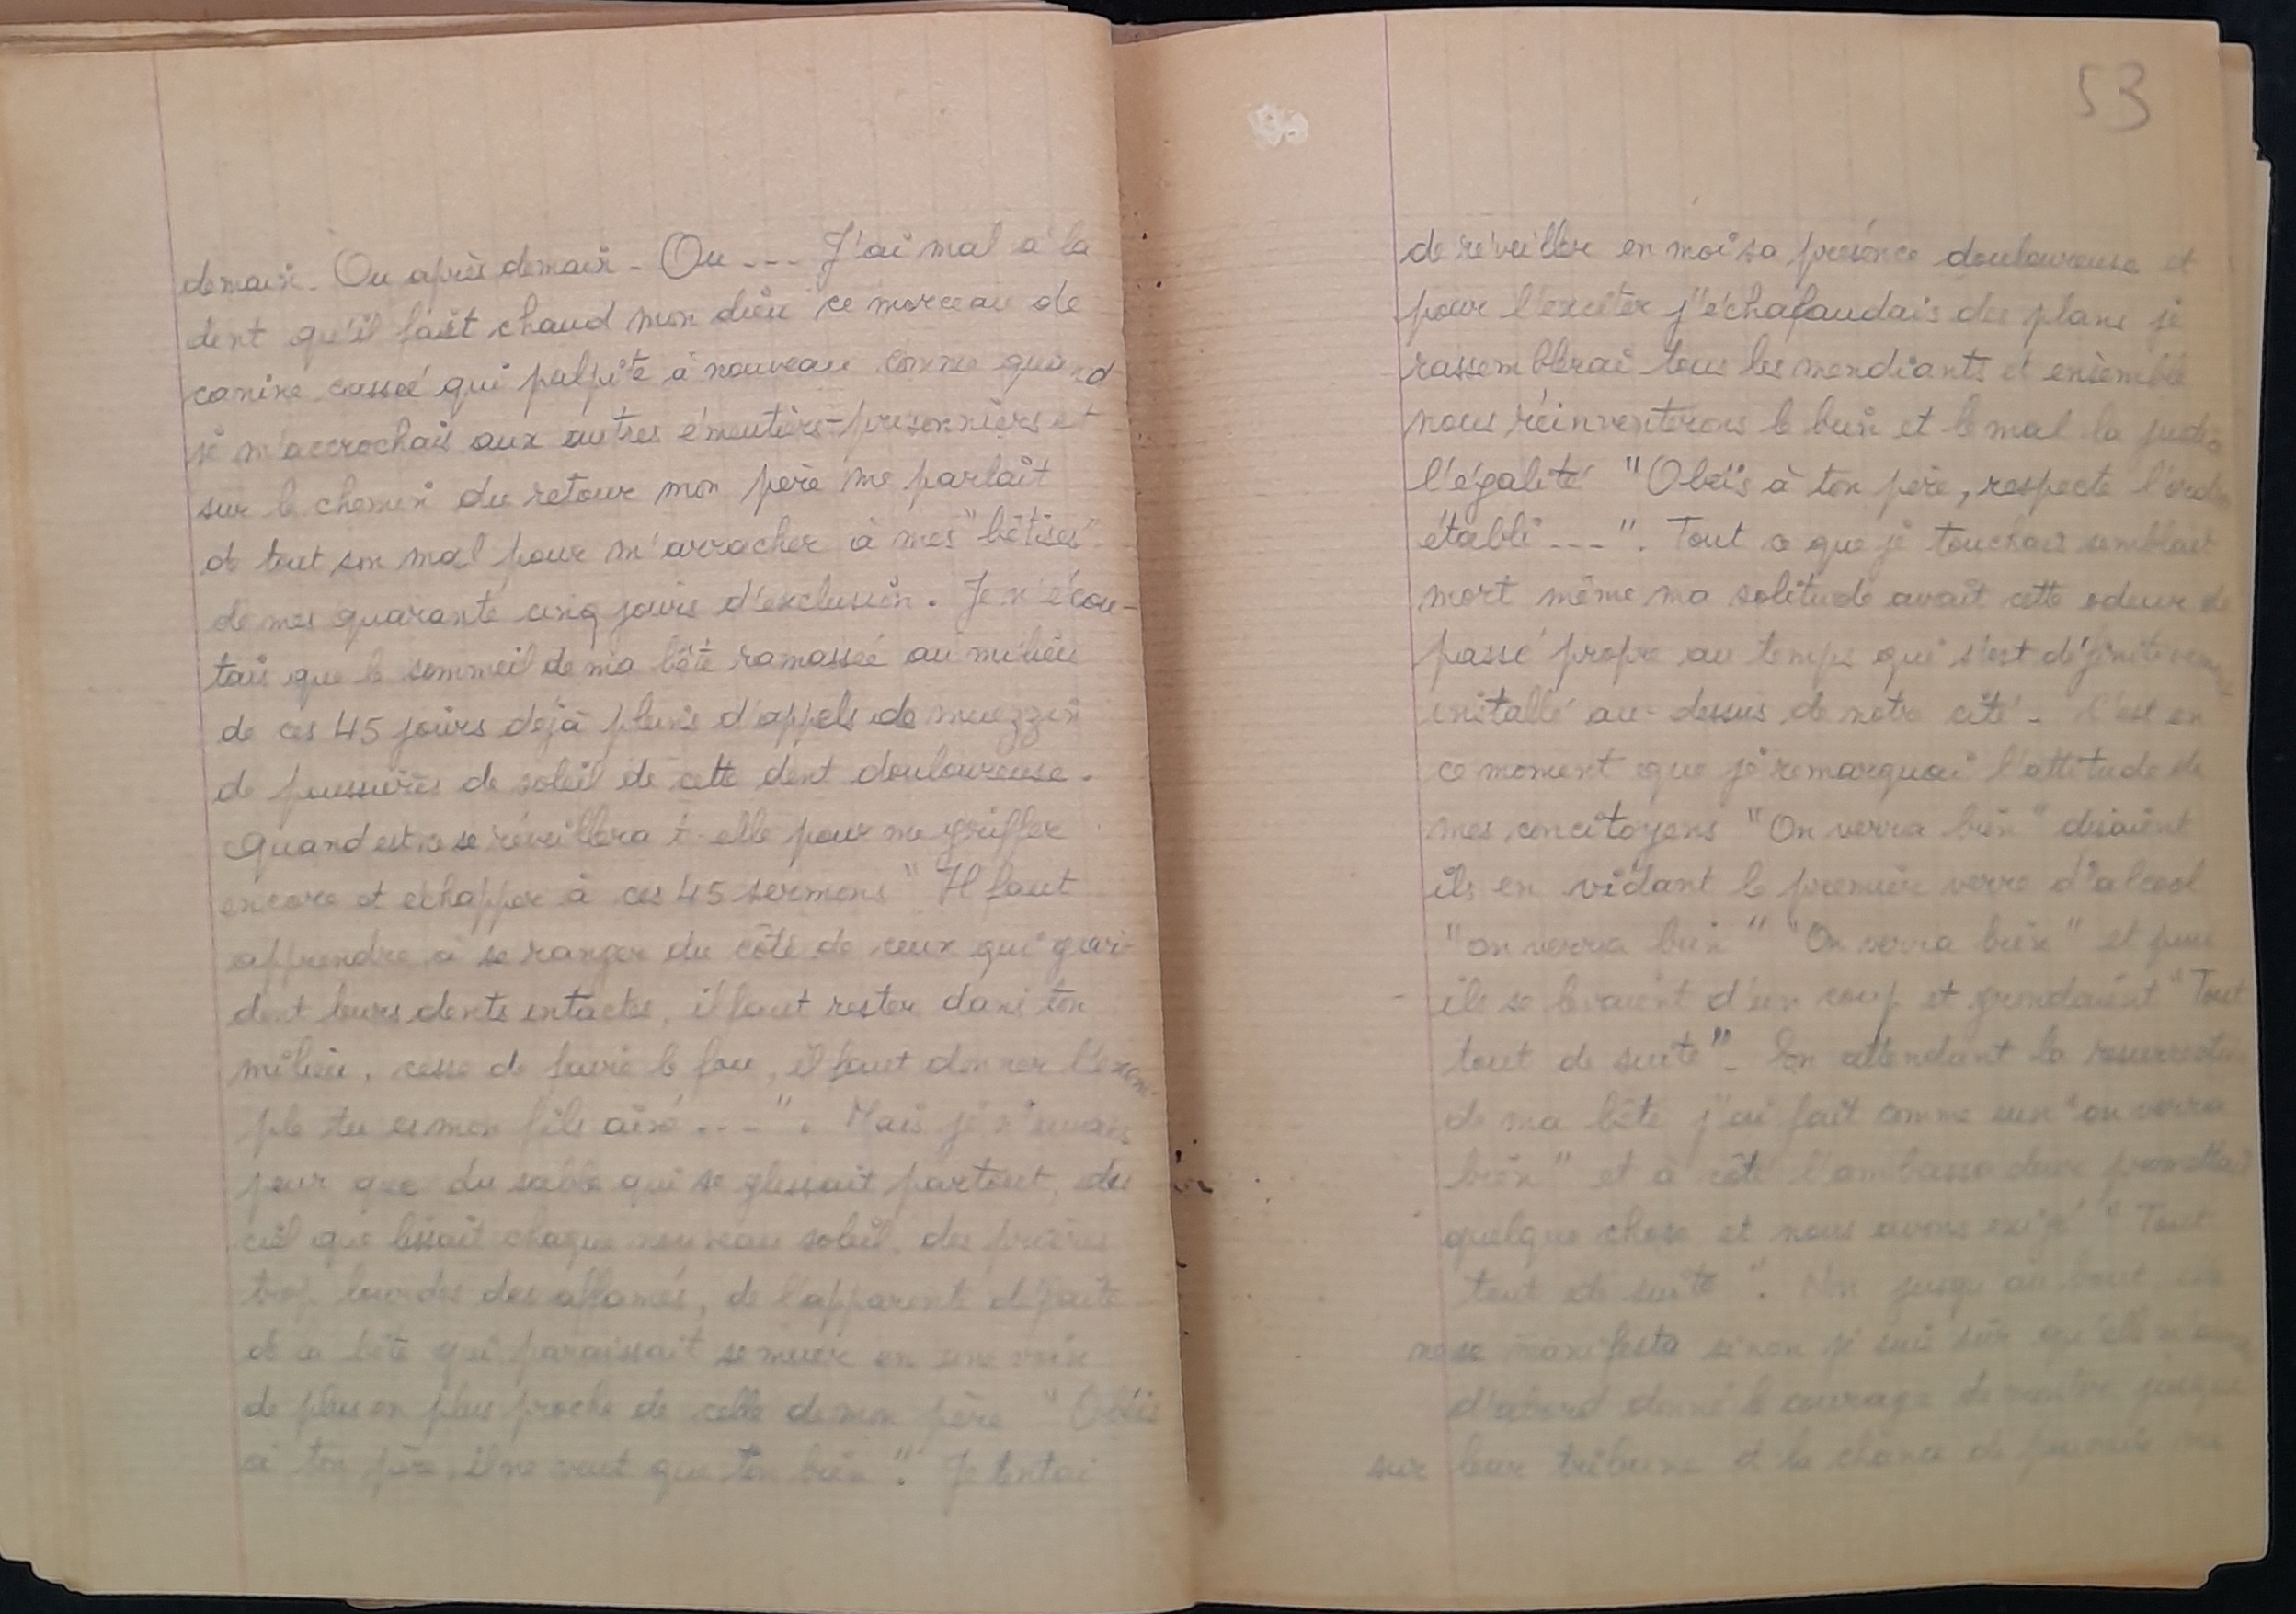 demain. Ou après demain - Ou --- J'ai mal à la
dent qu'il fait chaud mon dieu ce morceau de
canine cassée qui palpite à nouveau comme quand
je m'accrochais aux autres émeutiers-prisonniers et
sur le chemin du retour mon père me parlait
de tout son mal pour m'arracher à mes "bêtises"
de mes quarante cinq jours d'exclusion. Je n'écou-
tais que le sommeil de ma bête ramassée au milieu
de ces 45 jours déjà pleins d'appels de muezzin
de poussières de soleil de cette dent douloureuse.
Quand est ce se réveillera t-elle pour me griffer
encore et échapper à ces 45 sermons "Il faut
apprendre à se ranger du côté de ceux qui gar-
dent leurs dents intactes, il faut rester dans ton
milieu, cesse de faire le fou, il faut donner l'exem-
ple tu es mon fils aîné ---". Mais je n'avais
peur que du sable qui se glissait partout, du
ciel que lissait chaque nouveau soleil, des prières
trop lourdes des affamés, de l'apparente défaite
de la bête qui paraissait se muer en une voix
de plus en plus proche de celle de mon père "Obéis
à ton père, il ne veut que ton bien". Je tentai
53
de réveiller en moi sa présence douloureuse et
pour l'exciter j'échafaudais des plans je
rassemblerai tous les mendiants et ensemble
nous réinventerons le bien et le mal la
l'égalité "Obéis à ton père, respecte l'ordre
établi ---". Tout ce que je touchais semblait
mort même ma solitude avait cette odeur de
passé propre au temps qui s'est définitivement
installé au-dessus de notre cité - C'est en
ce moment que je remarquai l'attitude de
mes concitoyens "On verra bien" disaient
ils en vidant le premier verre d'alcool
"on verra bien" "On verra bien" et puis
ils se levaient d'un coup et grondaient "Tout
tout de suite". En attendant la resurrection
de ma bête j'ai fait comme eux "on verra
bien" et à côté l'ambassadeur promettait
quelque chose et nous avons exigé "Tout
tout de suite". Non jusqu'au bout
ne se manifesta sinon je suis sûr qu'elle
d'abord donné le courage de monter jusque
sur leur tribune et la chance de